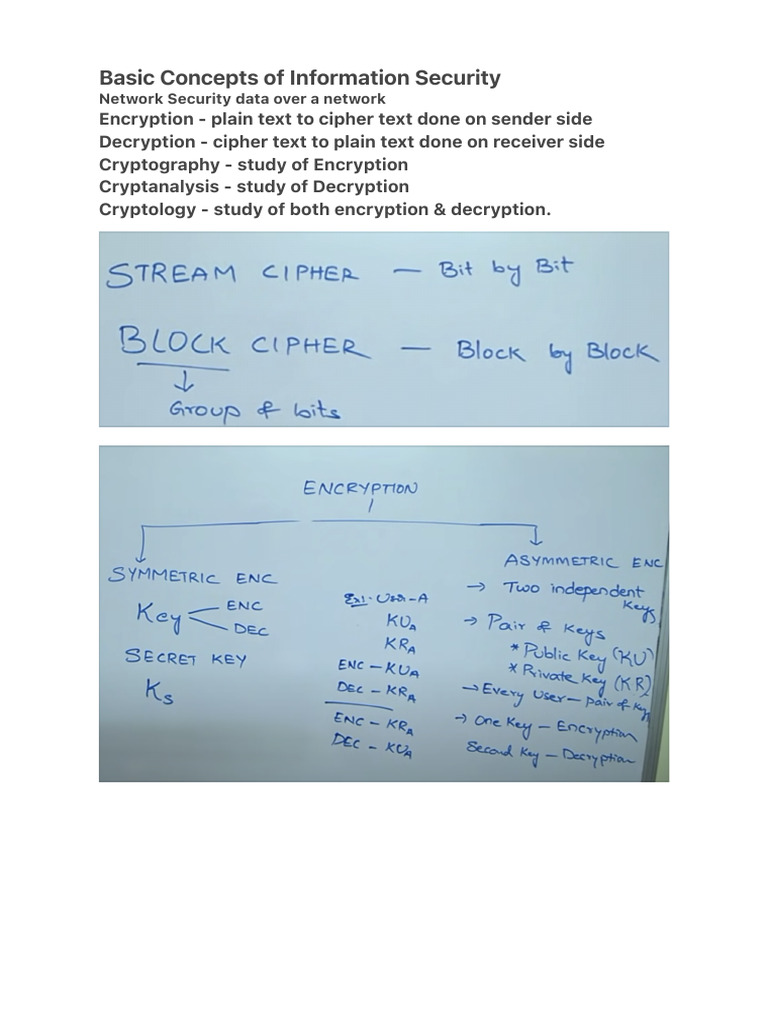 Basic Concepts of Information Security
Network Security data over a network
Encryption - plain text to cipher text done on sender side
Decryption - cipher text to plain text done on receiver side
Cryptography - study of Encryption
Cryptanalysis - study of Decryption
Cryptology - study of both encryption & decryption.
STREAM CIPHER — Bit by Bit
BLOCK CIPHER — Block by Block
↓
Group of bits
ENCRYPTION
SYMMETRIC ENC
Key
ENC
DEC
SECRET KEY
Ks
Ex1. User-A
KU_A
KR_A
ENC - KU_A
DEC - KR_A
ENC - KR_A
DEC - KU_A
ASYMMETRIC ENC
→ Two independent
Keys
→ Pair of Keys
* Public Key (KU)
* Private Key (KR)
→ Every User - pair of Keys
→ One Key - Encryption
Second Key - Decryption